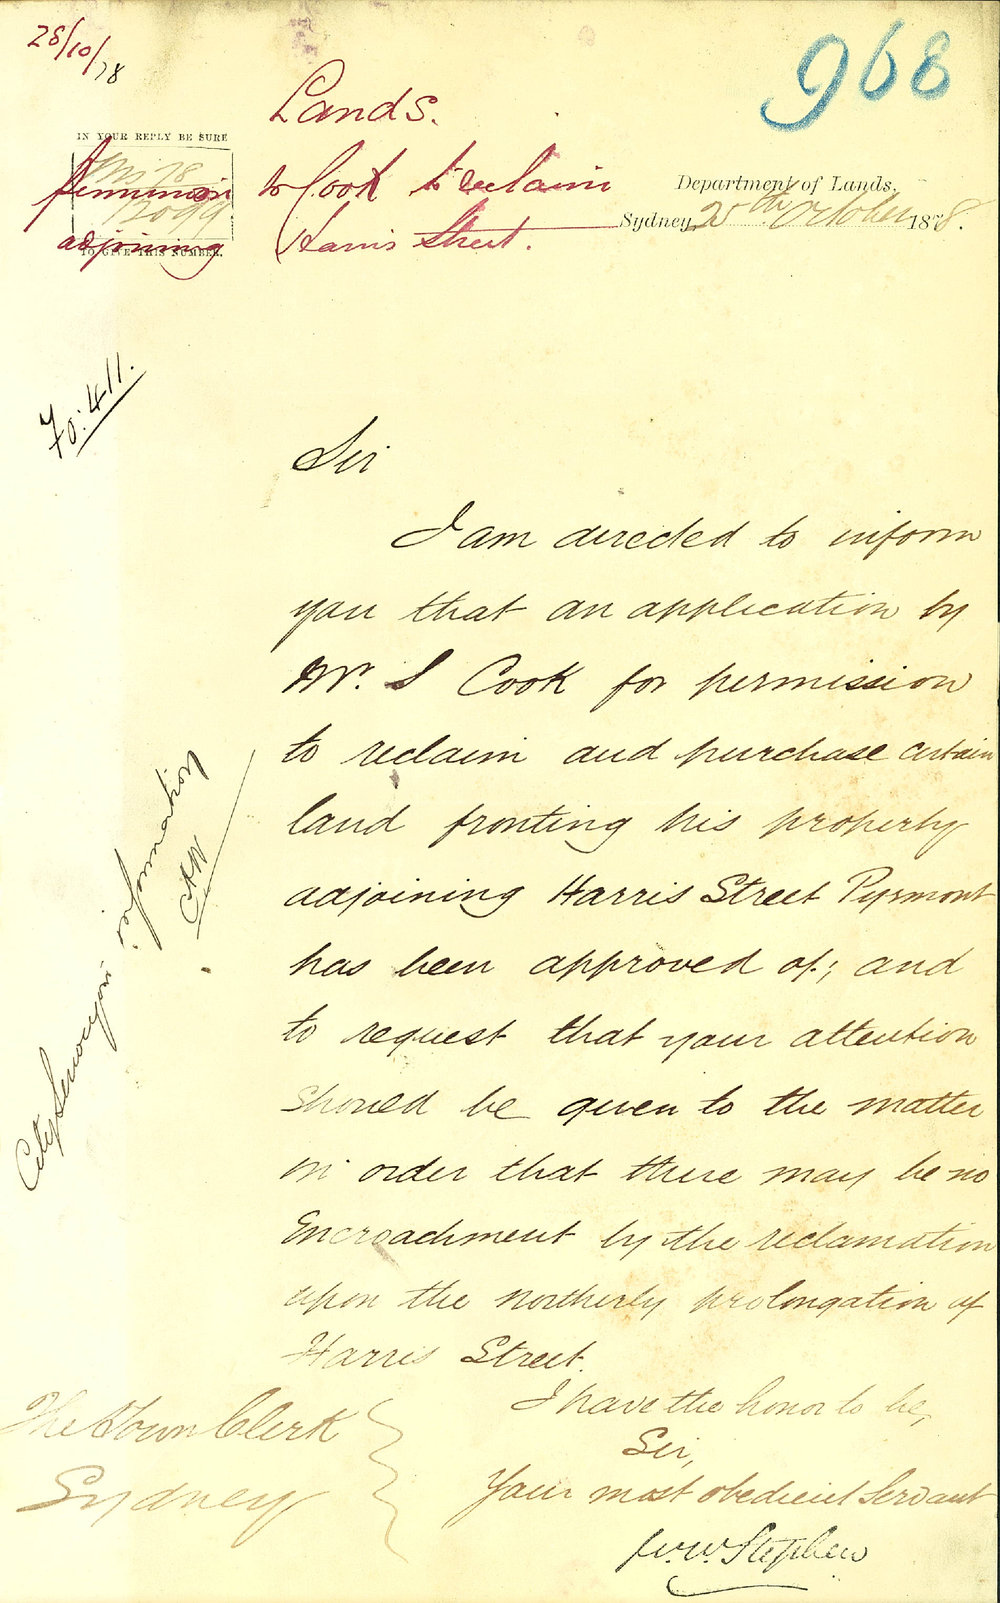 28/10/78
968
Lands.
IN YOUR REPLY BE SURE
Permission to Cook to reclaim
adjoining Harris Street.
TO GIVE THIS NUMBER.
Department of Lands.
Sydney, October 1878.
Fo: 411.
Sir
I am directed to inform
you that an application by
Mr. S Cook for permission
to reclaim and purchase certain
land fronting his property
adjoining Harris Street Pyrmont
has been approved of; and
to request that your attention
should be given to the matter
in order that there may be no
Encroachment by the reclamation
upon the northerly prolongation of
Harris Street.
City Surveyors information
I have the honor to be,
Sir,
Your most obedient Servant
W.W. Stephen
The Town Clerk
Sydney